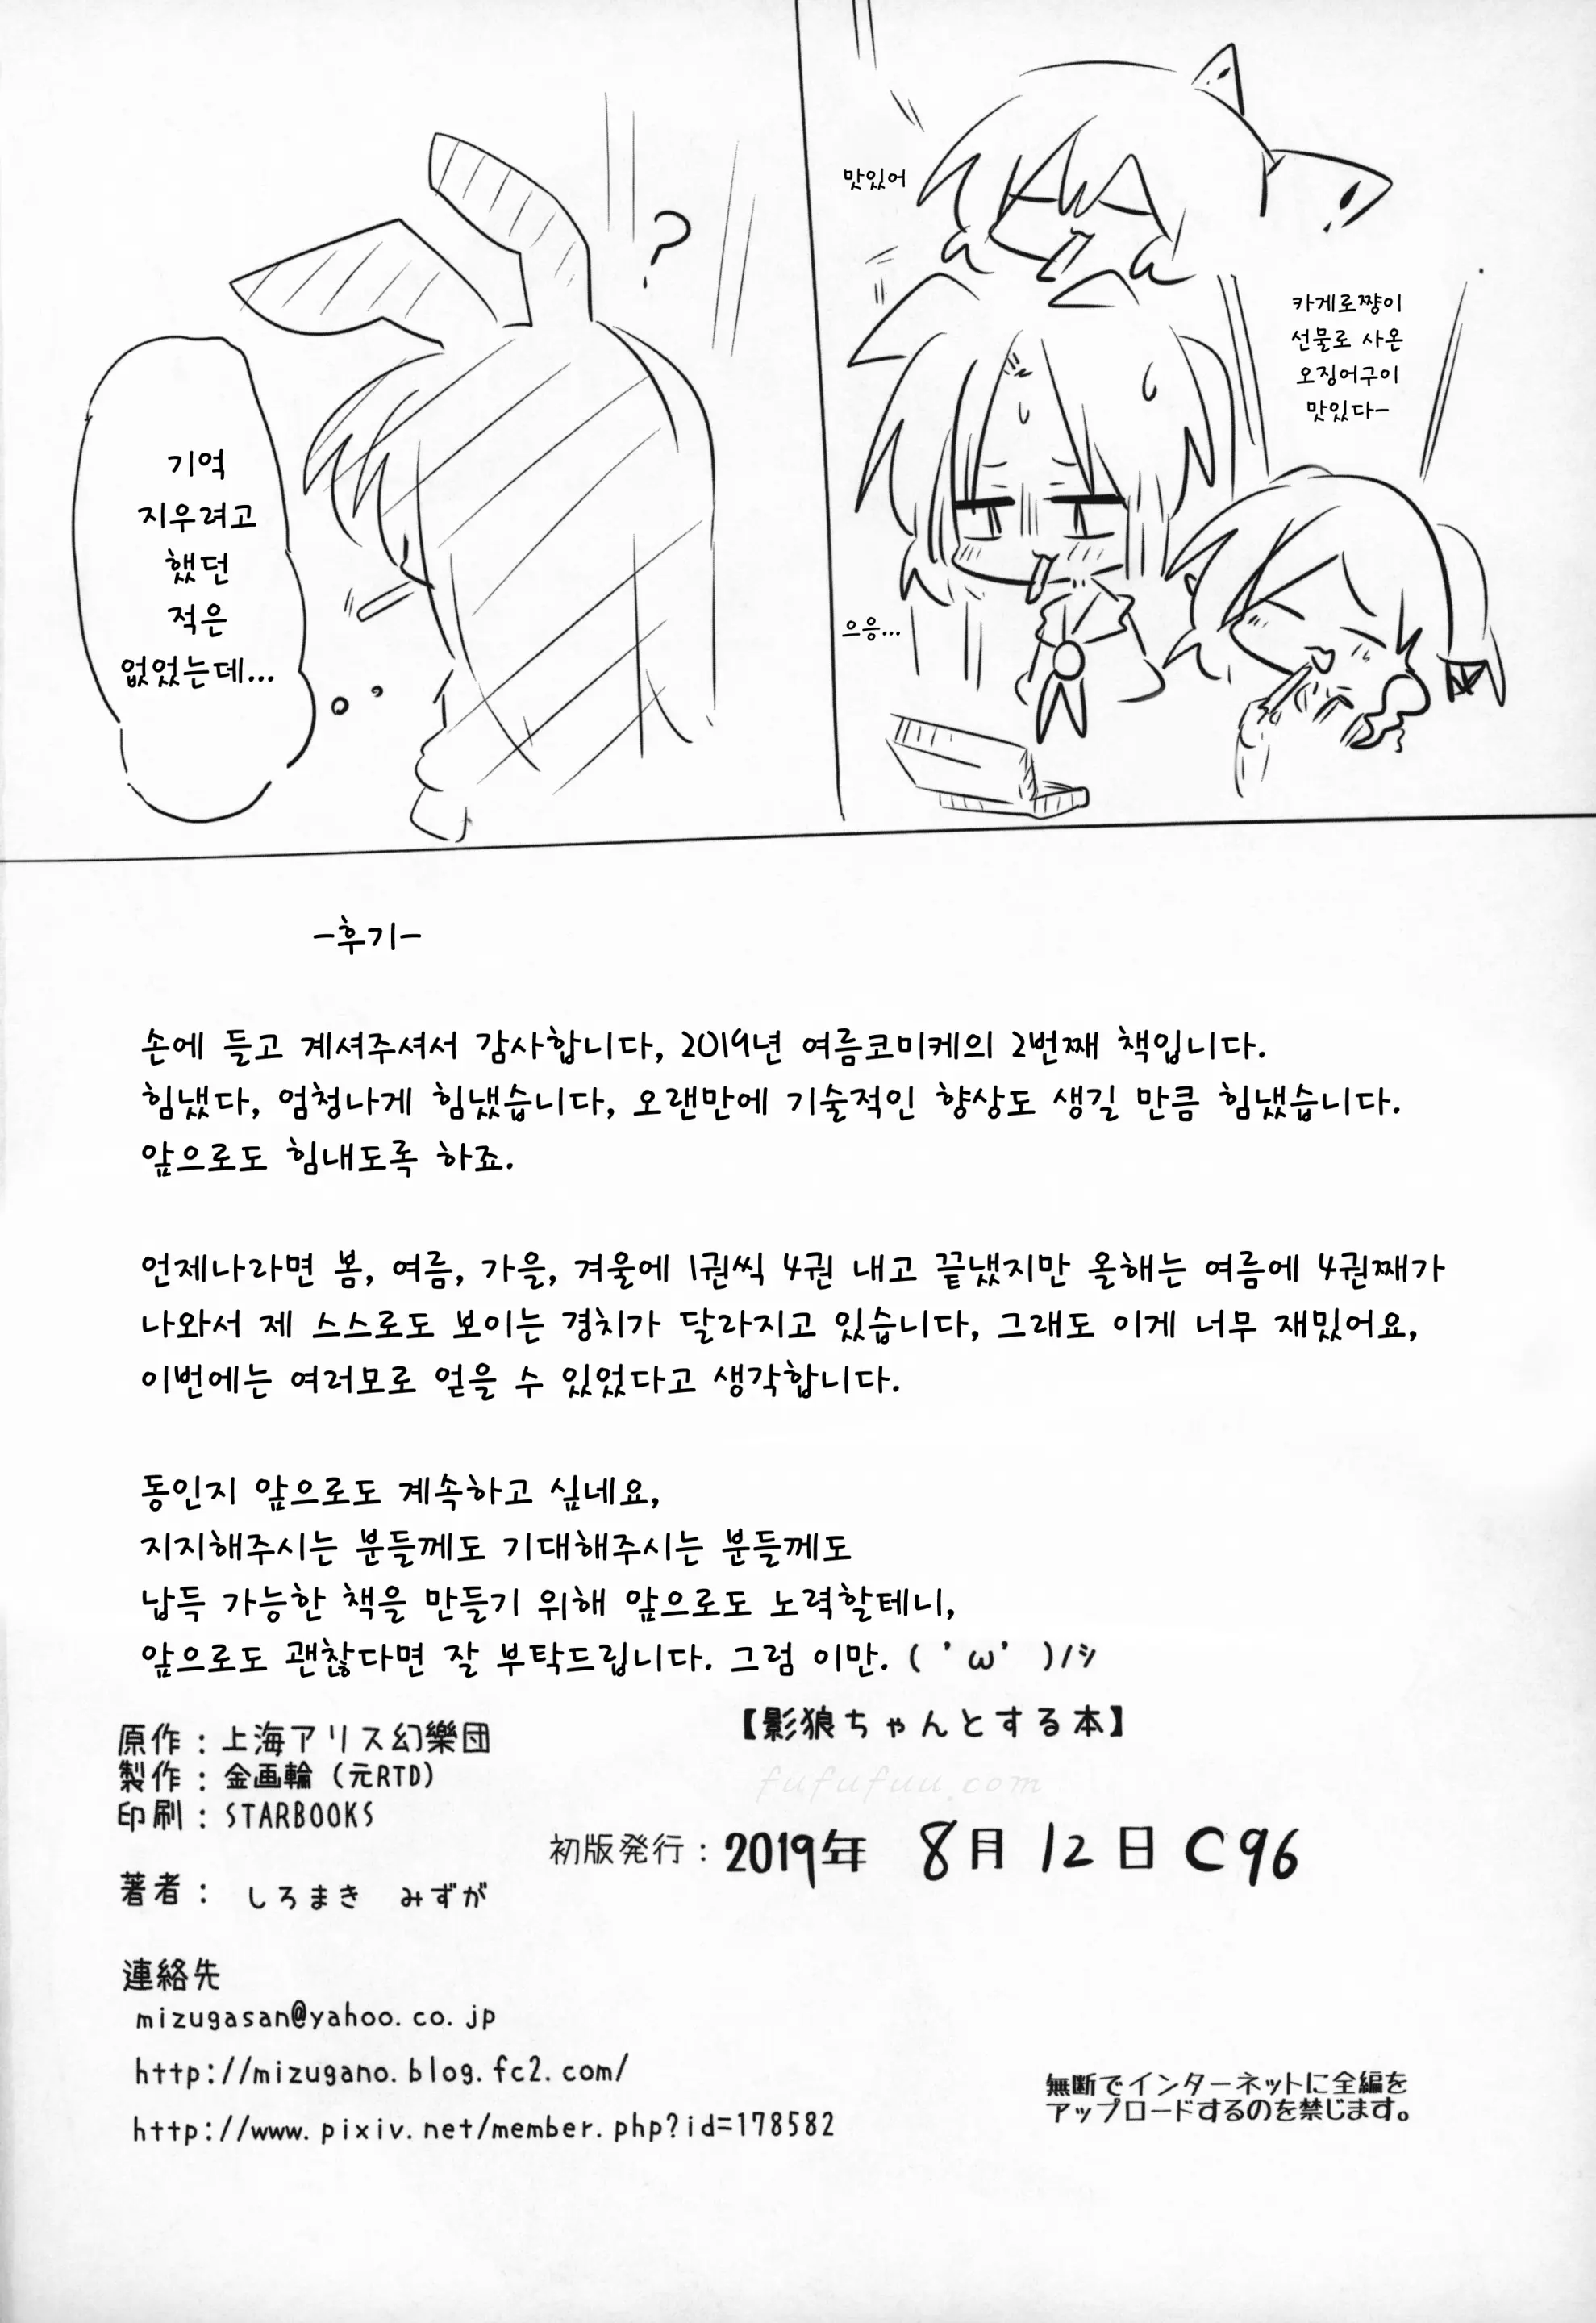 맛있어
카게로쨩이
선물로 사온
오징어구이
맛있다-
으응...
?
기억
지우려고
했던
적은
없었는데...
-후기-
손에 들고 계셔주셔서 감사합니다, 2019년 여름코미케의 2번째 책입니다.
힘냈다, 엄청나게 힘냈습니다, 오랜만에 기술적인 향상도 생길 만큼 힘냈습니다.
앞으로도 힘내도록 하죠.
언제나라면 봄, 여름, 가을, 겨울에 1권씩 4권 내고 끝냈지만 올해는 여름에 4권째가
나와서 제 스스로도 보이는 경치가 달라지고 있습니다, 그래도 이게 너무 재밌어요,
이번에는 여러모로 얻을 수 있었다고 생각합니다.
동인지 앞으로도 계속하고 싶네요,
지지해주시는 분들께도 기대해주시는 분들께도
납득 가능한 책을 만들기 위해 앞으로도 노력할테니,
앞으로도 괜찮다면 잘 부탁드립니다. 그럼 이만. ( 'ω' )/シ
【影狼ちゃんとする本】
原作：上海アリス幻樂団
製作：金画輪（元RTD）
印刷：STARBOOKS
fufufuu.com
初版発行：2019年 8月 12日 C96
著者： しろまき みずが
連絡先
mizugasan@yahoo.co.jp
http://mizugano.blog.fc2.com/
http://www.pixiv.net/member.php?id=178582
無断でインターネットに全編を
アップロードするのを禁じます。